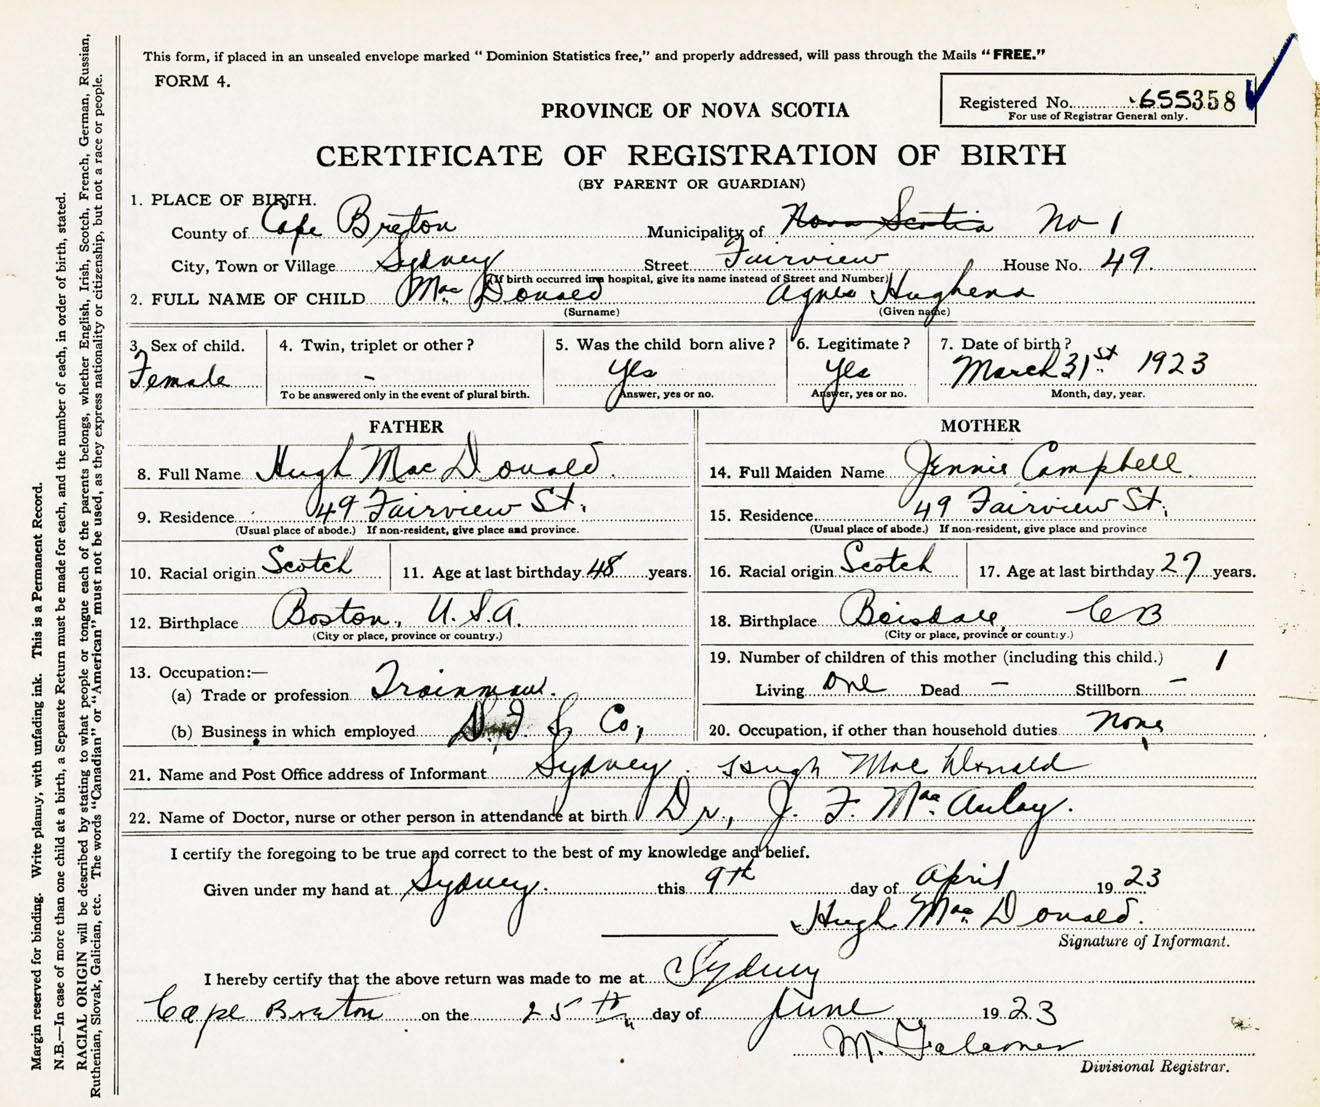 This form, if placed in an unsealed envelope marked “ Dominion Statistics free,” and properly addressed, will pass through the Mails “ FREE.”
FORM 4.
Registered No. 655358
For use of Registrar General only.
PROVINCE OF NOVA SCOTIA
CERTIFICATE OF REGISTRATION OF BIRTH
(BY PARENT OR GUARDIAN)
1. PLACE OF BIRTH.
County of Cape Breton Municipality of Nova Scotia No 1
City, Town or Village Sydney Street Fairview House No. 49.
(If birth occurred in a hospital, give its name instead of Street and Number)
2. FULL NAME OF CHILD Mac Donald Agnes Hughena
(Surname) (Given name)
3. Sex of child. 4. Twin, triplet or other ? 5. Was the child born alive ? 6. Legitimate ? 7. Date of birth ?
Female - Yes Yes March 31st 1923
To be answered only in the event of plural birth. Answer, yes or no. Answer, yes or no. Month, day, year.
FATHER MOTHER
8. Full Name Hugh Mac Donald. 14. Full Maiden Name Jennie Campbell.
9. Residence 49 Fairview St. 15. Residence 49 Fairview St.
(Usual place of abode.) If non-resident, give place and province. (Usual place of abode.) If non-resident, give place and province
10. Racial origin Scotch 11. Age at last birthday 48 years. 16. Racial origin Scotch 17. Age at last birthday 27 years.
12. Birthplace Boston, U.S.A. 18. Birthplace Boisdale, C B
(City or place, province or country.) (City or place, province or country.)
19. Number of children of this mother (including this child.) 1
13. Occupation:—
(a) Trade or profession Trainman. Living one Dead - Stillborn -
(b) Business in which employed S. Co, 20. Occupation, if other than household duties None
21. Name and Post Office address of Informant Sydney. Hugh Mac Donald
22. Name of Doctor, nurse or other person in attendance at birth Dr, J. F. Mac Aulay.
I certify the foregoing to be true and correct to the best of my knowledge and belief.
Given under my hand at Sydney. this 9th day of April 1923
Hugh Mac Donald.
Signature of Informant.
I hereby certify that the above return was made to me at Sydney
Cape Breton on the 25th day of June 1923
M. Falconer
Divisional Registrar.
Margin reserved for binding. Write plainly, with unfading ink. This is a Permanent Record.
N.B.—In case of more than one child at a birth, a Separate Return must be made for each, and the number of each, in order of birth, stated.
RACIAL ORIGIN will be described by stating to what people or tongue each of the parents belongs, whether English, Irish, Scotch, French, German, Russian,
Ruthenian, Slovak, Galician, etc. The words “Canadian” or “American” must not be used, as they express nationality or citizenship, but not a race or people.